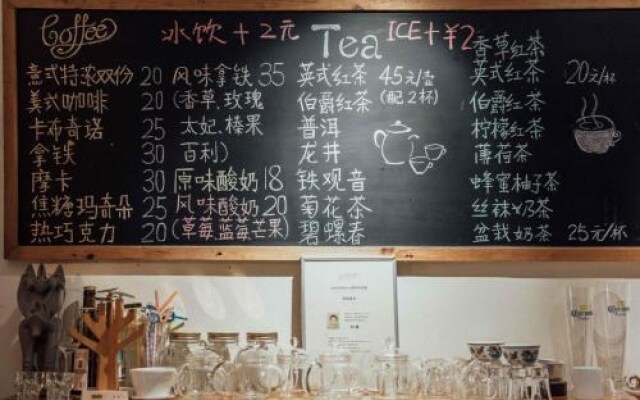 Coffee
冰饮+2元
Tea
ICE+¥2
意式特浓双份 20
美式咖啡 20
卡布奇诺 25
拿铁 30
摩卡 30
焦糖玛奇朵 25
热巧克力 20
风味拿铁 35
(香草.玫瑰
太妃.榛果
百利)
原味酸奶 18
风味酸奶 20
(草莓蓝莓芒果)
英式红茶 45元/壶
伯爵红茶 (配2杯)
普洱
龙井
铁观音
菊花茶
碧螺春
香草红茶
英式红茶 20元/杯
伯爵红茶
柠檬红茶
薄荷茶
蜂蜜柚子茶
丝袜奶茶
盆栽奶茶 25元/杯
Corona
Corona